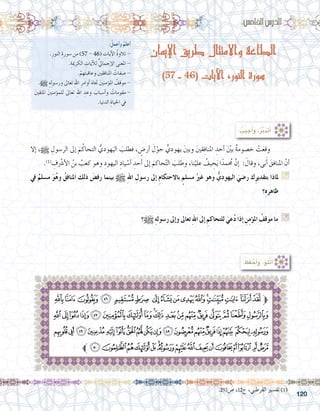 الدرس الخامس
الطاعة والامتثال طريق الإيمان
سورة النور، الآيات (46 - 57)
أتعلم وأحمل
- تلاوة الآيات (46 - 57) من سورة النور.
- المعنى الإجمالي للآيات الكريمة.
- صفات المنافقين وعاقبتهم.
- موقف المؤمنين تجاه أوامر الله تعالى ورسوله ﷺ.
- مقومات وأسباب وعد الله تعالى للمؤمنين المتقين
في الحياة الدنيا.
أتدبر، وأجيب
وقعت خصومة بين أحد المنافقين وبين يهودي حول أرض، فطلب اليهودي التحاكم إلى الرسول ﷺ، إلا
أن المنافق أبى، وقال: إن محمدا يحيف علينا، وطلب التحاكم إلى أحد أسياد اليهود وهو كعب بن الأشرف(1).
لماذا بتقديرك رضي اليهودي وهو غير مسلم بالاحتكام إلى رسول الله ﷺ بينما رفض ذلك المنافق وهو مسلم في
ظاهره؟
ما موقف المؤمن إذا دعي للتحاكم إلى الله تعالى وإلى رسوله ﷺ؟
أتلو، وأحفظ
لَقَدْ أَنزَلْنَا آيَاتٍ مُّبَيِّنَاتٍ وَاللَّهُ يَهْدِي مَن يَشَاءُ إِلَىٰ صِرَاطٍ مُّسْتَقِيمٍ (46) وَيَقُولُونَ آمَنَّا بِاللَّهِ
وَبِالرَّسُولِ وَأَطَعْنَا ثُمَّ يَتَوَلَّىٰ فَرِيقٌ مِّنْهُم مِّن بَعْدِ ذَٰلِكَ وَمَا أُولَٰئِكَ بِالْمُؤْمِنِينَ (47) وَإِذَا دُعُوا إِلَى اللَّهِ
وَرَسُولِهِ لِيَحْكُمَ بَيْنَهُمْ إِذَا فَرِيقٌ مِّنْهُم مُّعْرِضُونَ (48) وَإِن يَكُن لَّهُمُ الْحَقُّ يَأْتُوا إِلَيْهِ مُذْعِنِينَ (49) أَفِي قُلُوبِهِم
مَّرَضٌ أَمِ ارْتَابُوا أَمْ يَخَافُونَ أَن يَحِيفَ اللَّهُ عَلَيْهِمْ وَرَسُولُهُ بَلْ أُولَٰئِكَ هُمُ الظَّالِمُونَ (50)
(1) تفسير القرطبي، ج12، ص293.
120